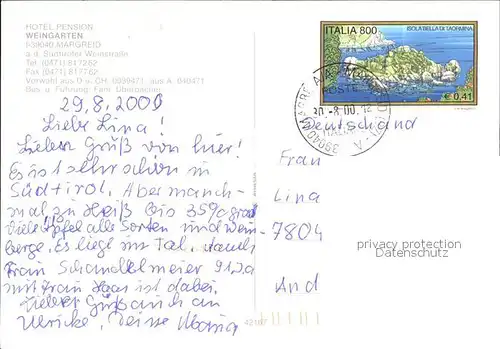 HOTEL PENSION
WEINGARTEN
I-39040 MARGREID
a.d. Südtiroler Weinstraße
Tel. (0471) 817262
Fax (0471) 8177 62
Vorwahl aus D u. CH 0039471 aus A 040471
Bes. u. Führung: Fam.
29.8.2000
Liebe Lina!
Lieben Gruß von hier!
Es ist sehr schön in
Südtirol. Aber manch-
mal zu Heiß bis 35° grad
viele Äpfel alle Sorten und Wein-
berge. Es liegt im Tal. auch
Frau 91 J a
mit Frau Haas ist dabei
Lieben Gruß auch an
Ulrike, Deine Maria
ISOLA BELLA DI TAORMINA
ITALIA 800
€ 0,41
39040
POSTE
-8.00.
ITALIANE
Deutschland
Frau
Lina
7804
And
privacy protection
Datenschutz